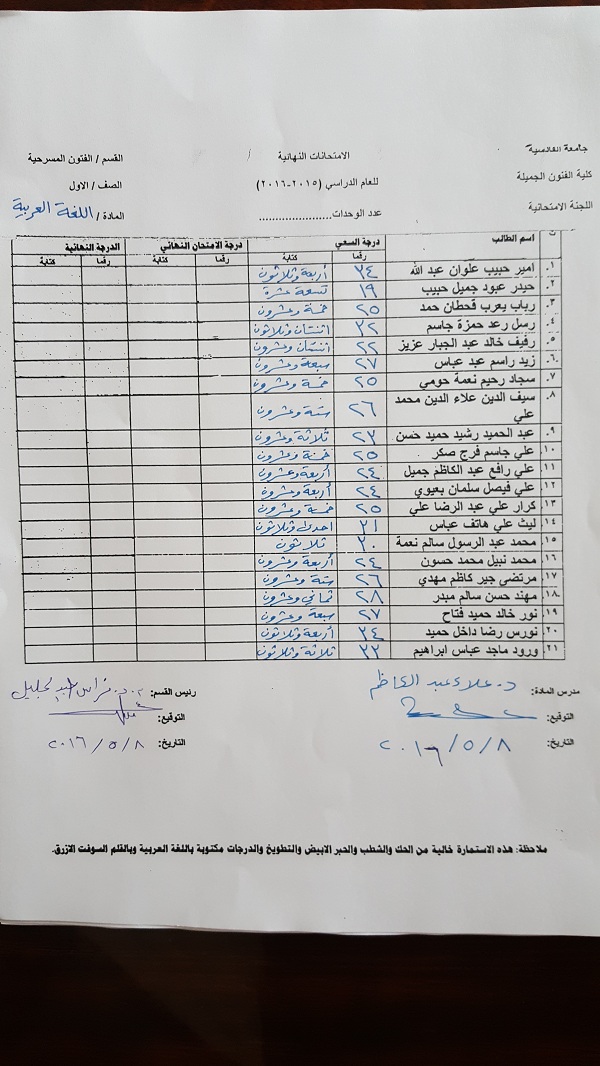 جامعة القادسية الامتحانات النهائية القسم / الفنون المسرحية
كلية الفنون الجميلة للعام الدراسي (٢٠١٥-٢٠١٦) الصف / الاول
اللجنة الامتحانية عدد الوحدات...................... المادة / اللغة العربية
ت اسم الطالب درجة السعي درجة الامتحان النهائي الدرجة النهائية
رقما كتابة رقما كتابة رقما كتابة
١. امير حبيب علوان عبد الله ٣٤ أربعة وثلاثون
٢. حيدر عبود جميل حبيب ١٩ تسعة عشرة
٣. رباب يعرب قحطان حمد ٢٥ خمسة وعشرون
٤. رسل رعد حمزة جاسم ٣٢ اثنتان وثلاثون
٥. رفيف خالد عبد الجبار عزيز ٢٢ اثنتان وعشرون
٦. زيد راسم عبد عباس ٢٧ سبعة وعشرون
٧. سجاد رحيم نعمة حومي ٢٥ خمسة وعشرون
٨. سيف الدين علاء الدين محمد علي ٢٦ ستة وعشرون
٩. عبد الحميد رشيد حميد حسن ٢٣ ثلاثة وعشرون
١٠. علي جاسم فرج صكر ٢٥ خمسة وعشرون
١١. علي رافع عبد الكاظم جميل ٢٤ أربعة وعشرون
١٢. علي فيصل سلمان بعيوي ٢٤ أربعة وعشرون
١٣. كرار علي عبد الرضا علي ٢٥ خمسة وعشرون
١٤. ليث علي هاتف عباس ٣١ احدى وثلاثون
١٥. محمد عبد الرسول سالم نعمة ٣٠ ثلاثون
١٦. محمد نبيل محمد حسون ٢٤ أربعة وعشرون
١٧. مرتضى جبر كاظم مهدي ٢٦ ستة وعشرون
١٨. مهند حسن سالم مبدر ٢٨ ثماني وعشرون
١٩. نور خالد حميد فتاح ٢٧ سبعة وعشرون
٢٠. نورس رضا داخل حميد ٣٤ أربعة وثلاثون
٢١. ورود ماجد عباس ابراهيم ٣٣ ثلاثة وثلاثون
مدرس المادة: د. علاء عبد الكاظم رئيس القسم: د. فراس
التوقيع: التوقيع:
التاريخ: ٢٠١٦/٥/٨ التاريخ: ٢٠١٦/٥/٨
ملاحظة: هذه الاستمارة خالية من الحك والشطب والحبر الابيض والتطويخ والدرجات مكتوبة باللغة العربية وبالقلم السوفت الازرق.